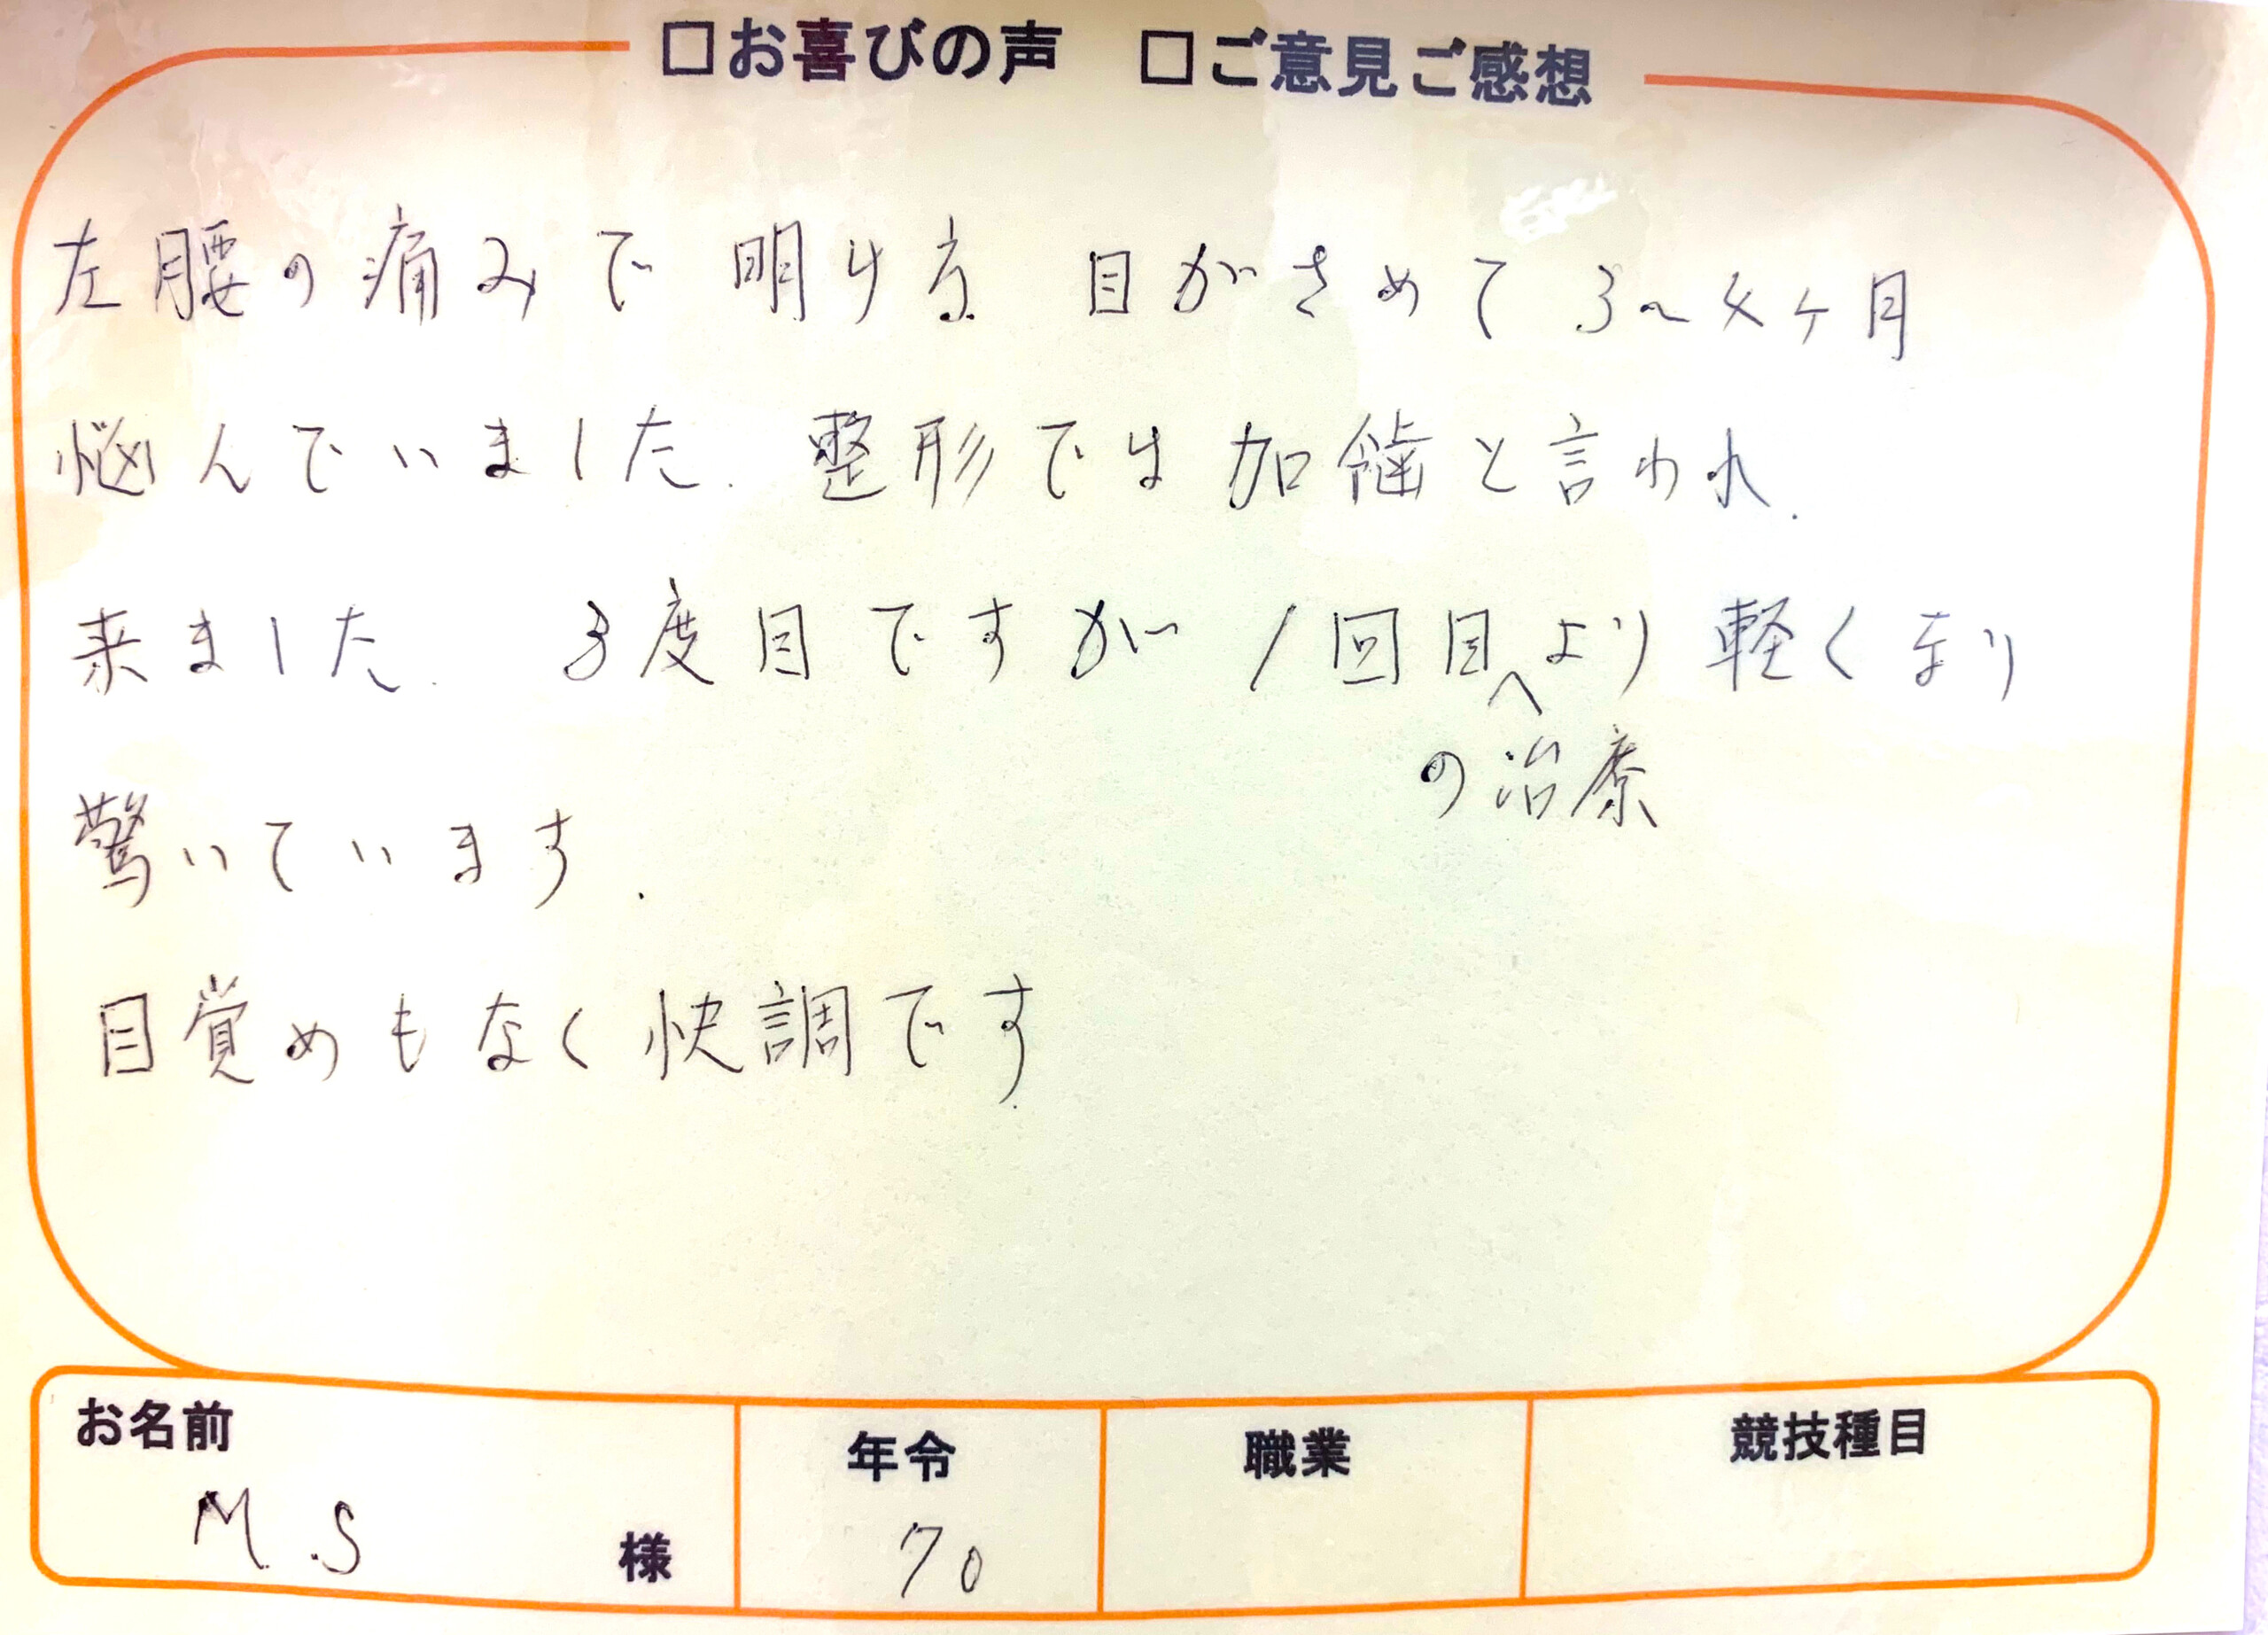 □お喜びの声 □ご意見ご感想
左腰の痛みで 明け方 目がさめて 3〜4ヶ月
悩んでいました. 整形では加齢と言われ.
来ました. 3度目ですが 1回目より軽くなり
の治療
驚いています.
目覚めもなく快調です.
お名前 年令 職業 競技種目
M.S 様 70